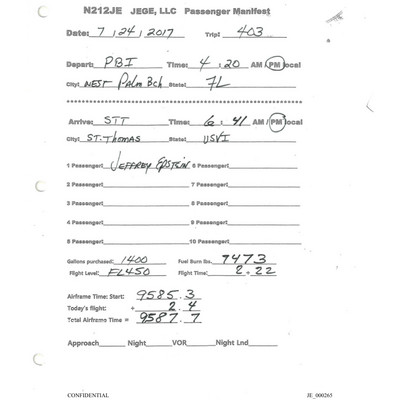 N212JE JEGE, LLC Passenger Manifest
Date: 7 / 24 / 2017 Trip# 403
Depart: PBI Time: 4 : 20 AM / PM local
City: WEST Palm Bch State: FL
Arrive: STT Time: 6 : 41 AM / PM local
City: ST. Thomas State: USVI
1 Passenger: JEFFREY EPSTEIN 6 Passenger:
2 Passenger: 7 Passenger:
3 Passenger: 8 Passenger:
4 Passenger: 9 Passenger:
5 Passenger: 10 Passenger:
Gallons purchased: 1400 Fuel Burn lbs. 7473
Flight Level: FL450 Flight Time: 2 + 22
Airframe Time: Start: 9585.3
Today's flight: + 2.4
Total Airframe Time = 9587.7
Approach Night VOR Night Lnd
CONFIDENTIAL JE_000265